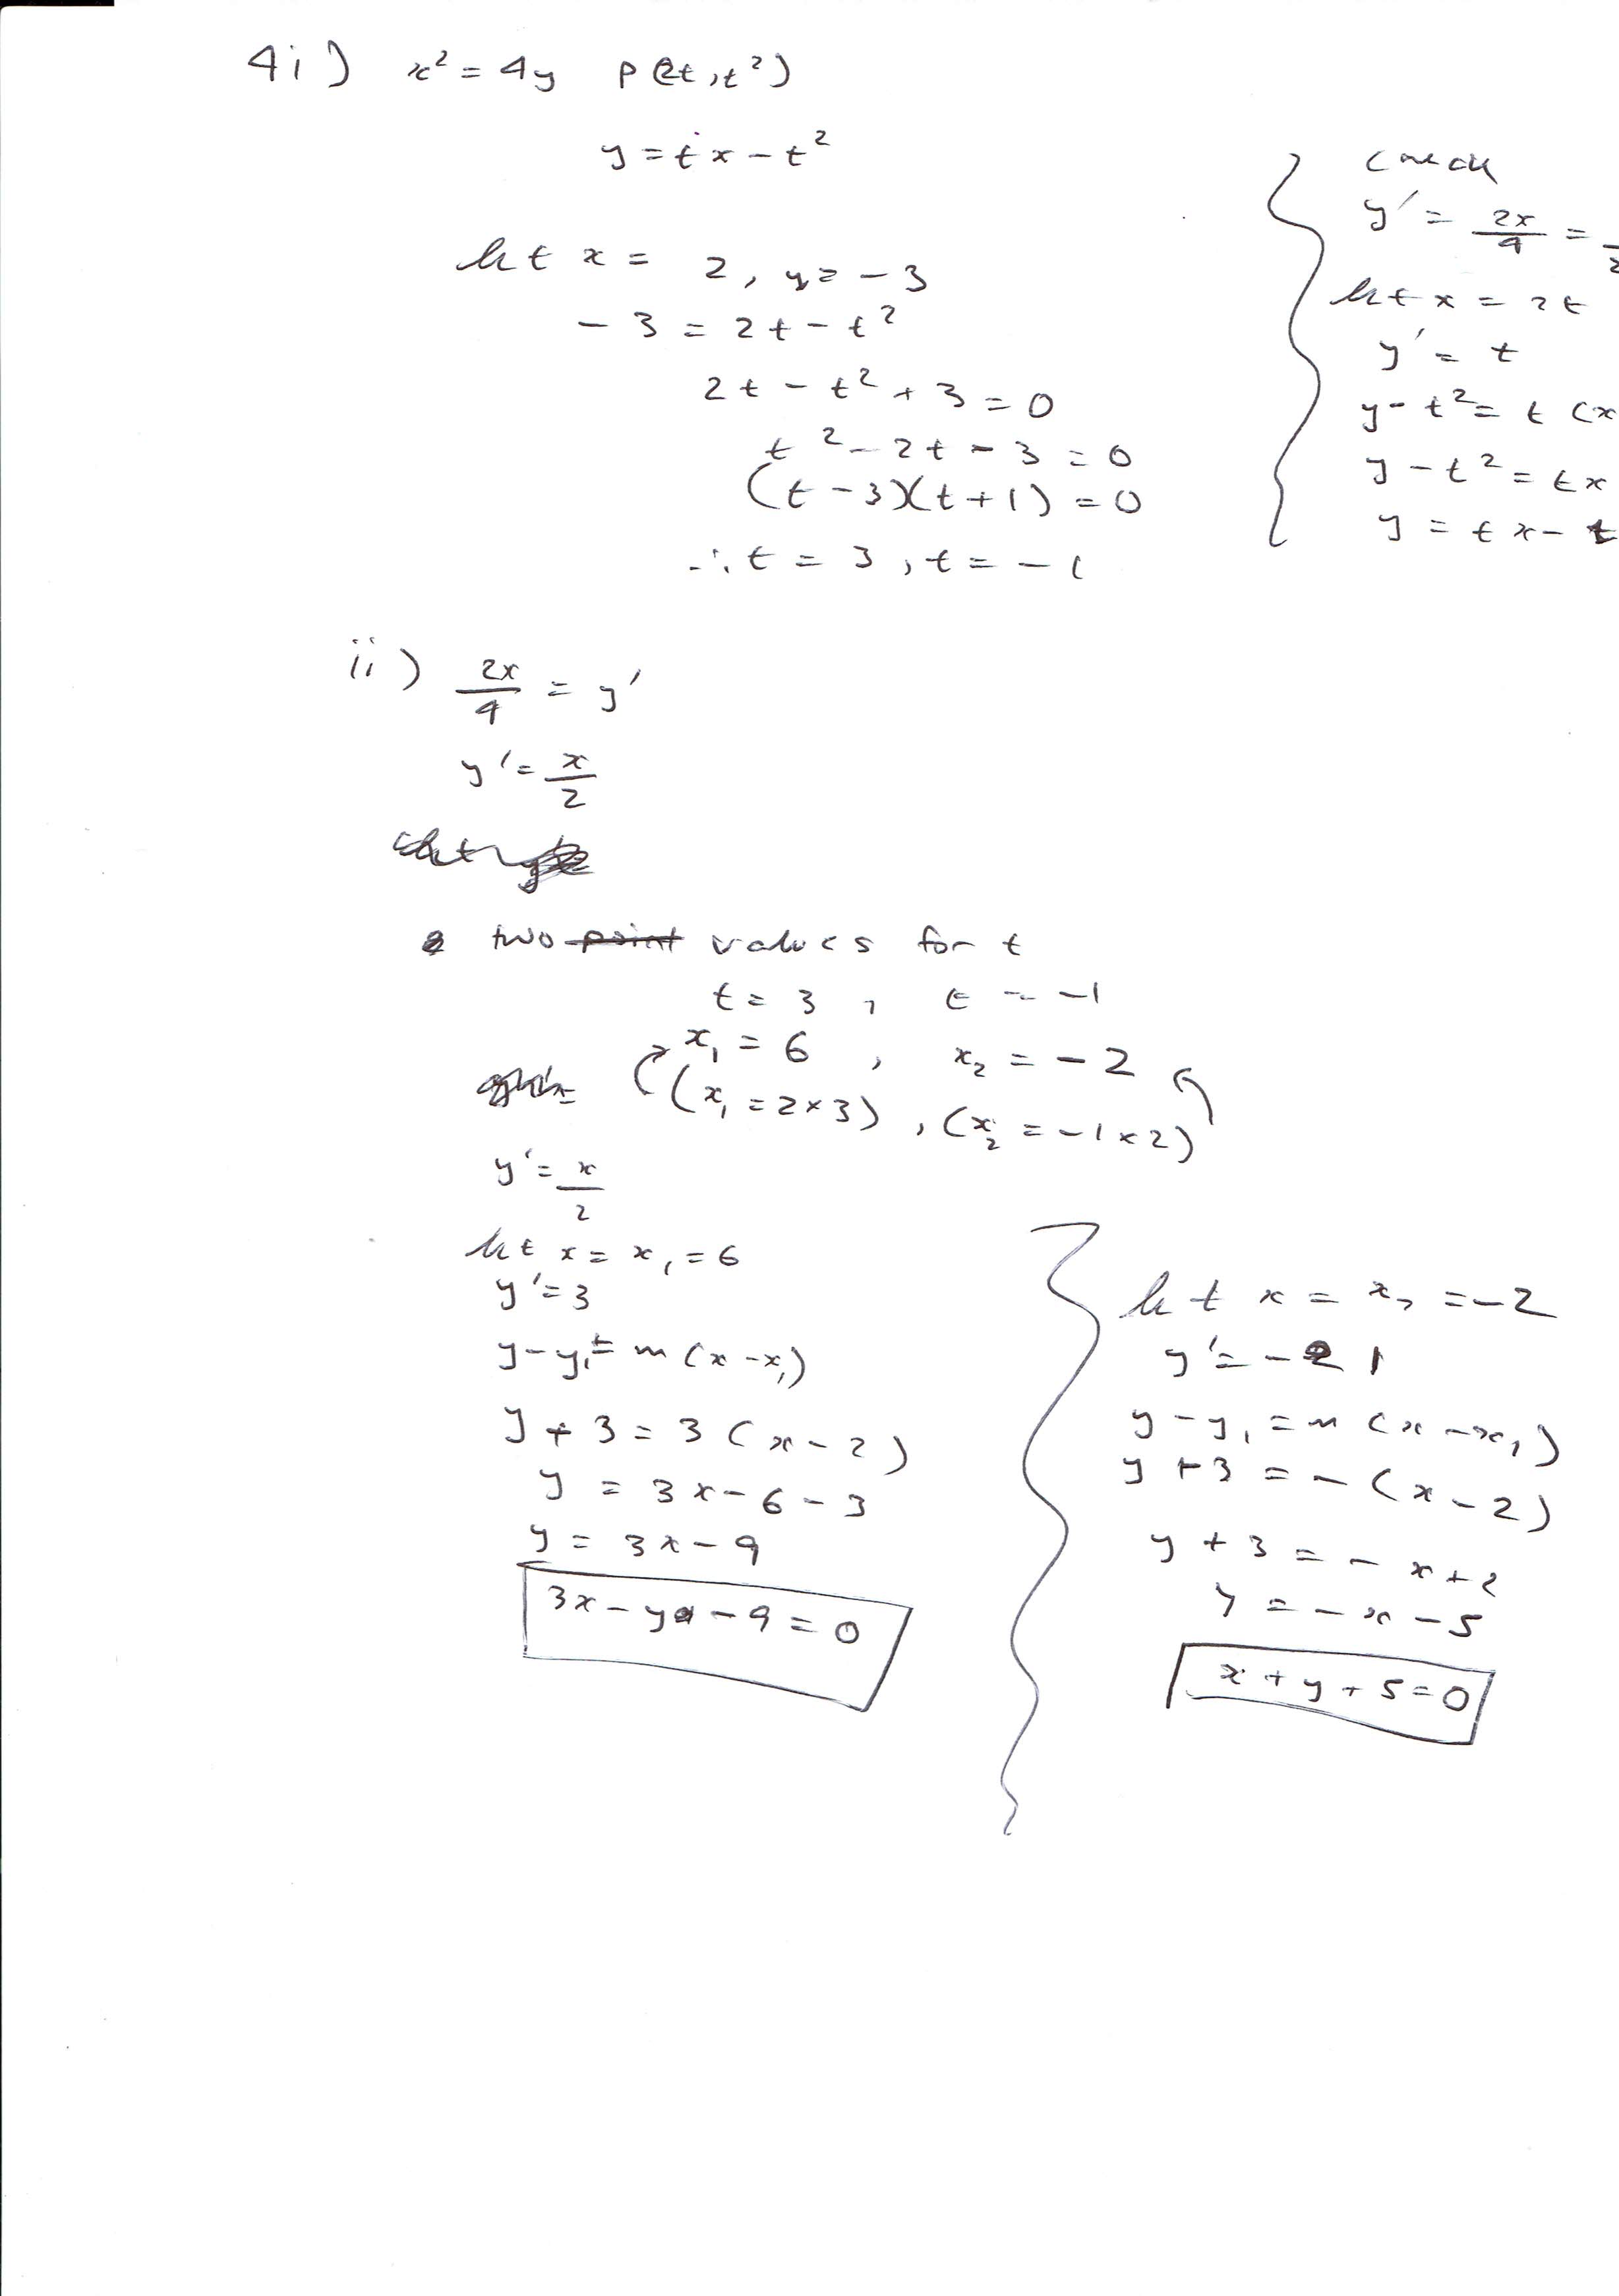 4i) x² = 4y P(2t, t²)
y = tx - t²
let x = 2, y = -3
-3 = 2t - t²
2t - t² + 3 = 0
t² - 2t - 3 = 0
(t - 3)(t + 1) = 0
∴ t = 3, t = -1
check
y' = 2x/4 =
let x = 2t
y' = t
y - t² = t (x
y - t² = tx
y = tx - t
ii) 2x/4 = y'
y' = x/2
two point values for t
t = 3, t = -1
x₁ = 6, x₂ = -2
(x₁ = 2×3), (x₂ = -1×2)
y' = x/2
let x = x₁ = 6
y' = 3
y - y₁ = m (x - x₁)
y + 3 = 3 (x - 2)
y = 3x - 6 - 3
y = 3x - 9
3x - y - 9 = 0
let x = x₂ = -2
y' = - 1
y - y₁ = m (x - x₁)
y + 3 = - (x - 2)
y + 3 = - x + 2
y = - x - 5
x + y + 5 = 0